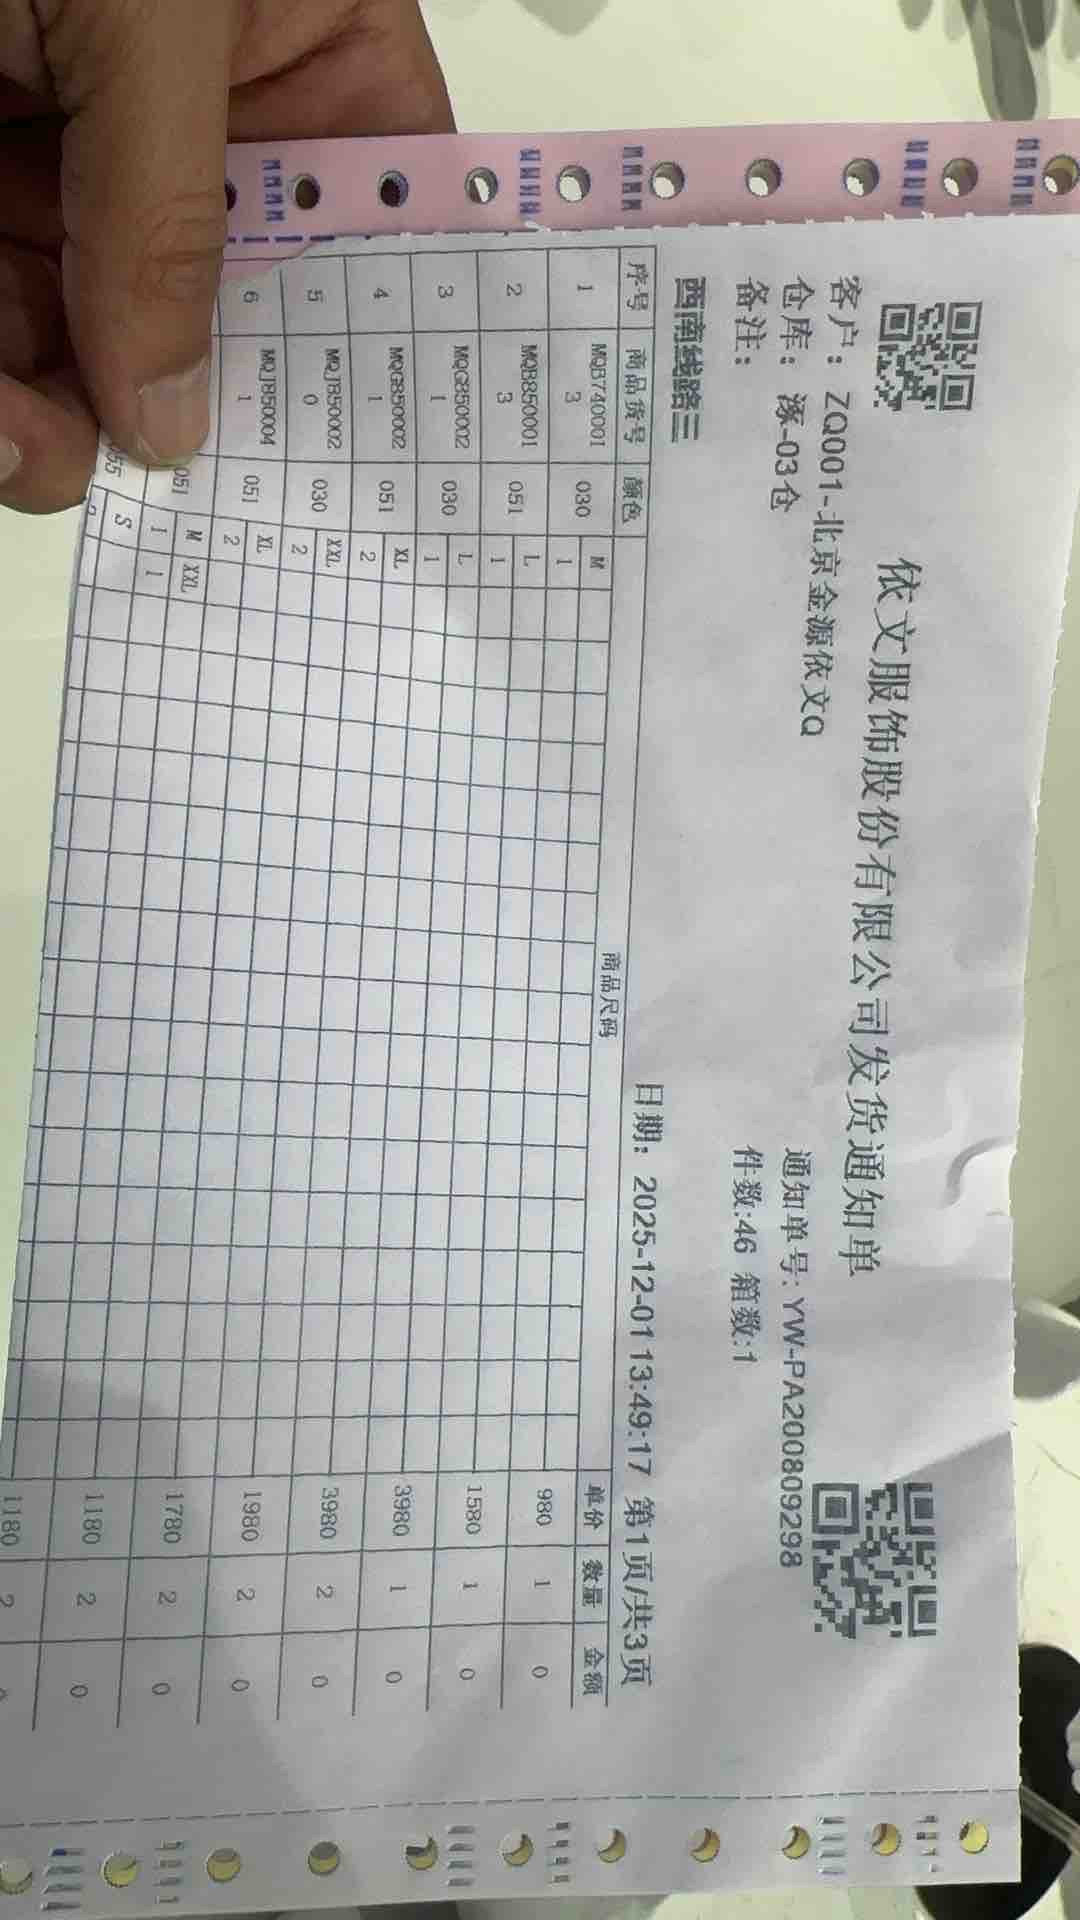 依文服饰股份有限公司发货通知单
客户：ZQ001-北京金源依文Q
通知单号: YW-PA200809298
仓库：涿-03仓
件数:46 箱数:1
备注：
西南线路三
日期: 2025-12-01 13:49:17 第1页/共3页
序号 商品货号 颜色 商品尺码 单价 数量 金额
1 MQB740001 030 M 980 1 0
3 1
2 MQB850001 051 L 1580 1 0
3 1
3 MQG850002 030 L 3980 1 0
1 1
4 MQG850002 051 XL 3980 2 0
1 2
5 MQJ850002 030 XXL 1980 2 0
0 2
6 MQJ850004 051 XL 1780 2 0
1 2
051 M XXL 1180 2 0
1 1
55 S 1180 2